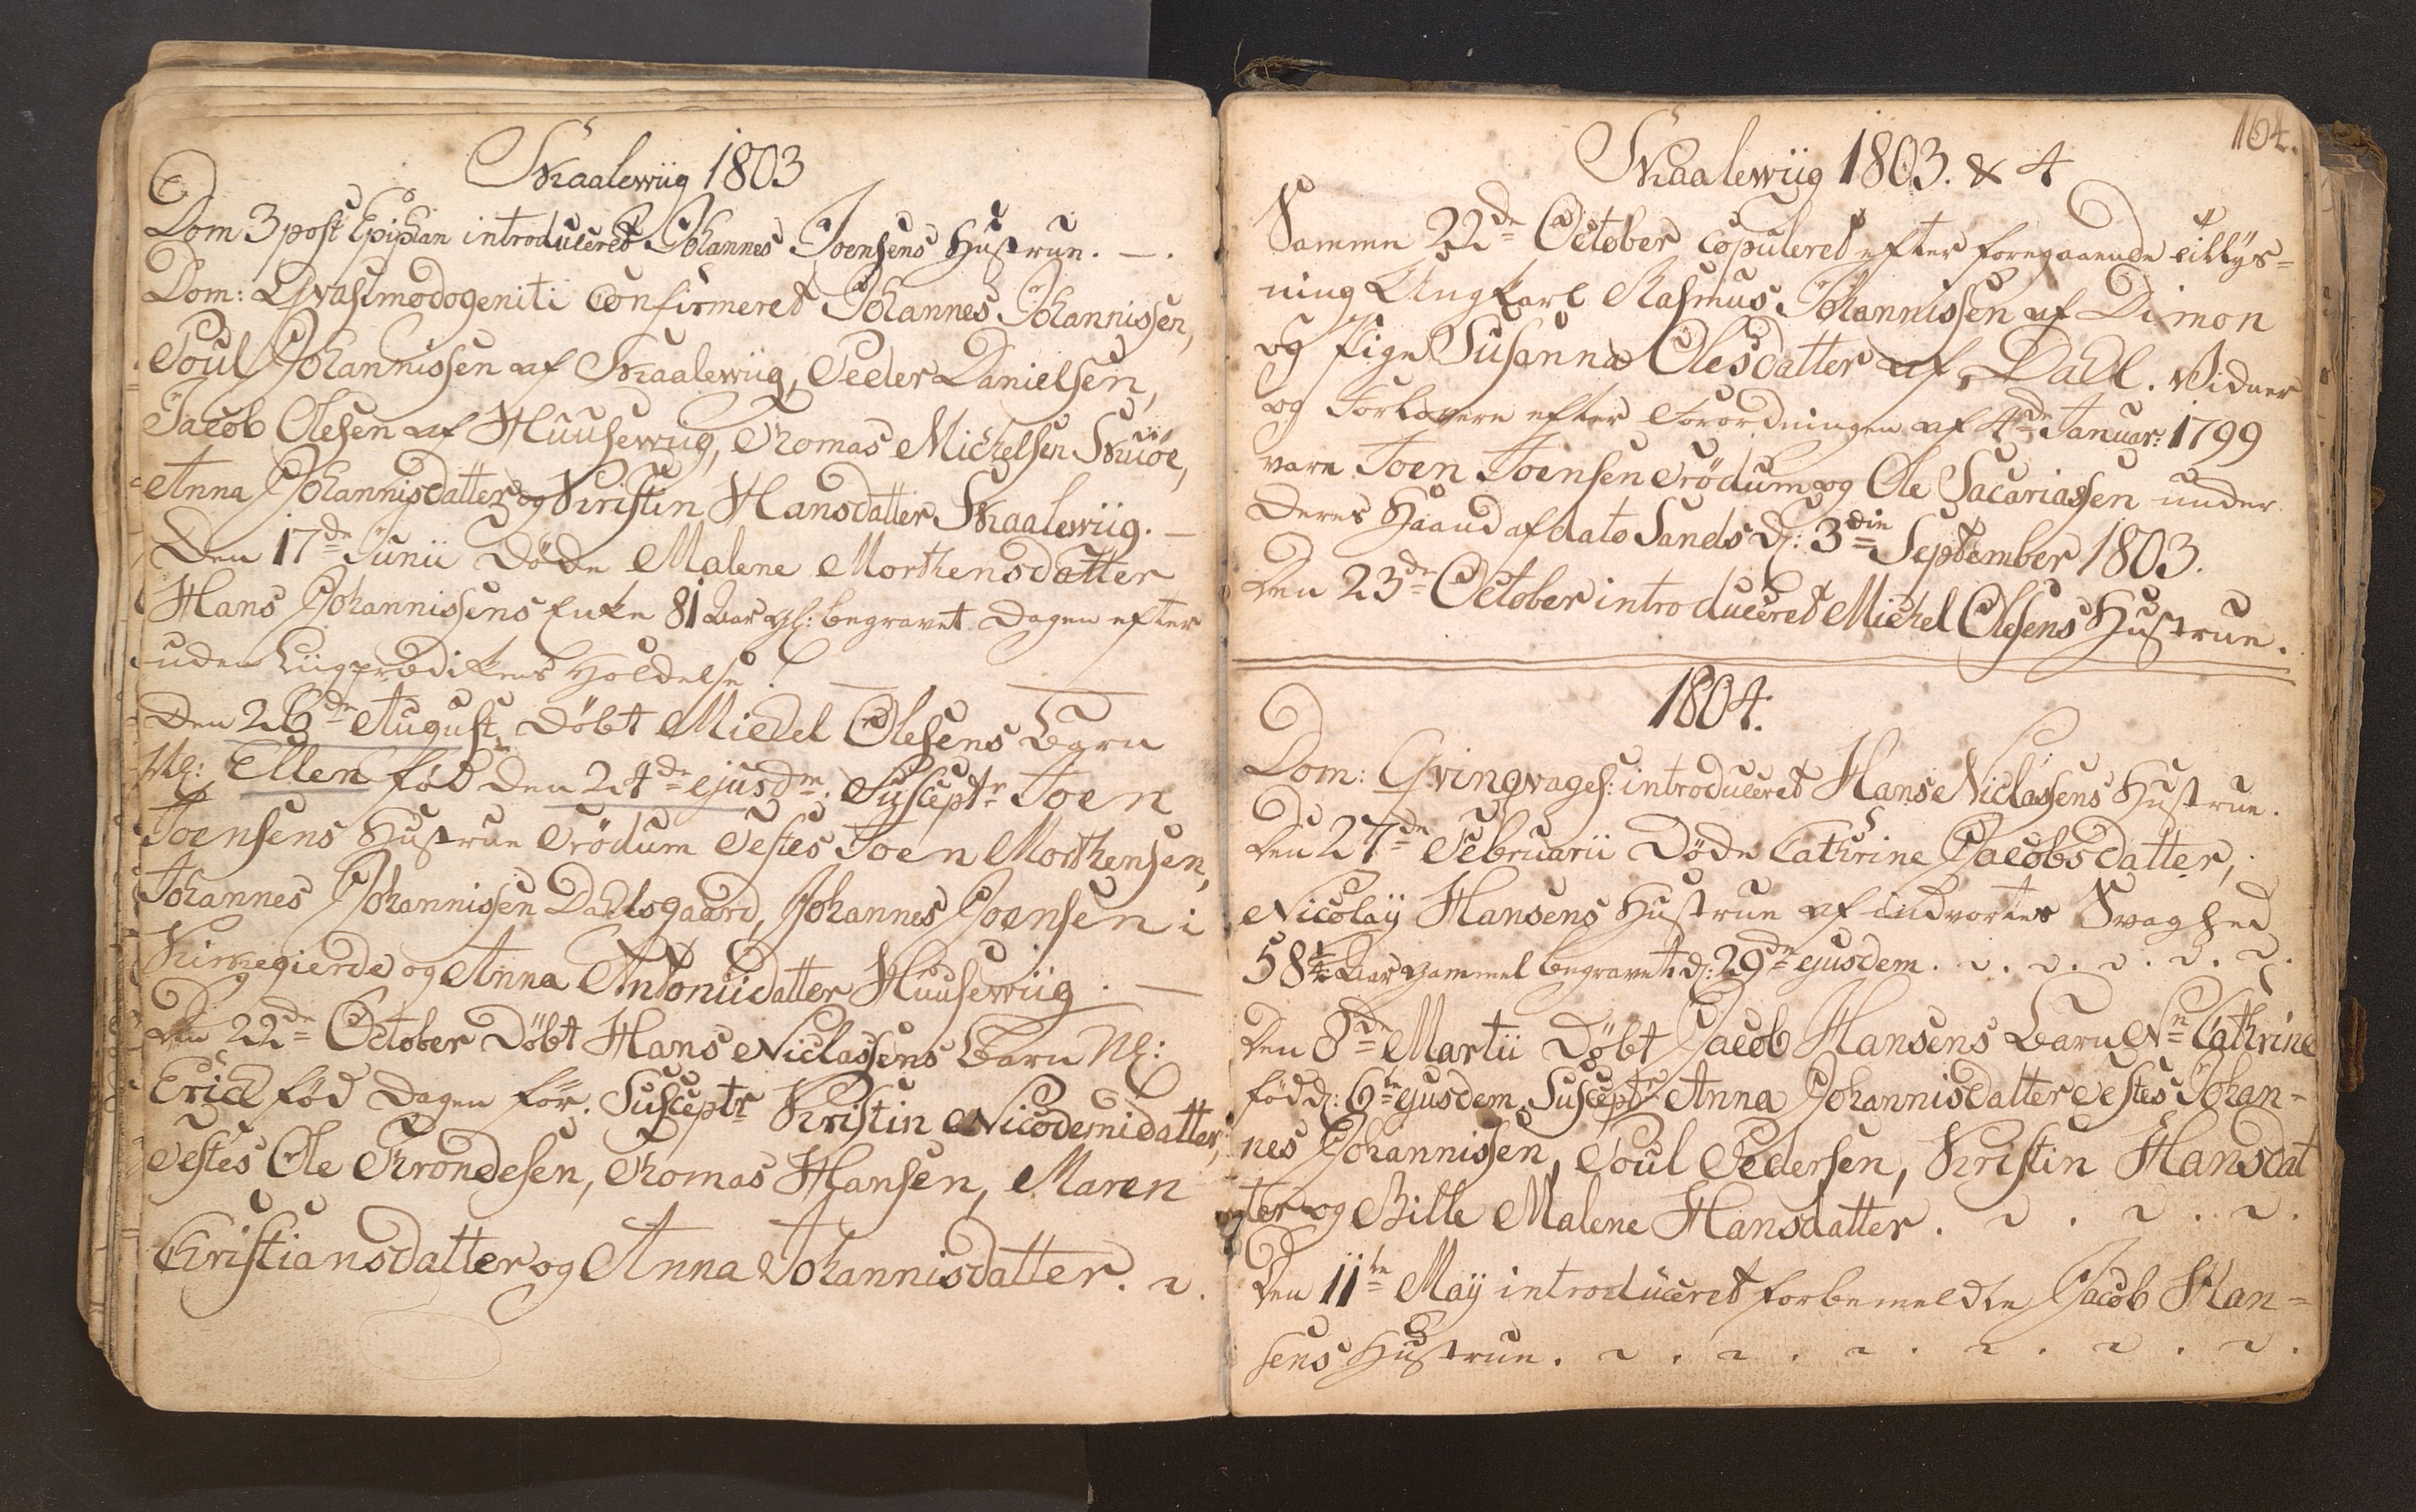 Skaalewiig 1803
Dom 3 post Epiphan introduceret Johannes Joensens Hustrue. —.
Dom: Qvasimodogeniti Confirmeret Johannes Johannissen,
Poul Johannissen af Skaalewiig, Peder Danielsen,
Jacob Olesen af Huusewiig, Thomas Michelsen Skuöe,
Anna Johannisdatter og Kristin Hansdatter Skaalewiig. —
Den 17de Junii Døde Malene Morthensdatter
Hans Johannissens Enke 81 Aar gl: begravet Dagen efter
uden Liigprædikens Holdelse. —
Den 26de August Döbt Michel Olesens Barn
Nl: Ellen fød den 24de ejusdm. Susceptr Joen
Joensens Hustrue Trödum Testes Joen Morthensen,
Johannes Johannissen Dahlsgaard, Johannes Joensen i
Kirkegierde og Anna Antoniidatter Huusewiig. —
Den 22de October Döbt Hans Niclassens Barn Nl:
Erich fød Dagen før. Susceptr Kristin Nicodemidatter,
Testes Ole Throndesen, Thomas Hansen, Maren
Christiansdatter og Anna Johannisdatter.
164.
Skaalewiig 1803. & 4
Samme 22de October copuleret efter foregaaende tillys=
ning Ungkarl Rasmus Johannissen af Dimon
og Pige Susanna Olesdatter af Dahl. Vidner
og Forlovere efter Forordningen af 4de Januar: 1799
vare Joen Joensen Trödum og Ole Sacariassen under
Deres Haand af dato Sands d: 3die September 1803.
Den 23de October introduceret Michel Olesens Hustrue.
1804.
Dom: Qvinqvages: introduceret Hans Niclassens Hustrue.
Den 27de Februarii Døde Cathrine Jacobsdatter,
Nicolaÿ Hansens Hustrue af indvortes Svaghed
58½ Aar gammel begravet d: 29de ejusdem.
Den 8de Martii Döbt Jacob Hansens Barn Nn Cathrine
fød d: 6te ejusdem Susceptr Anna Johannisdatter Testes Johan-
nes Johannissen, Poul Pedersen, Kristin Hansdat
ter og Bille Malene Hansdatter.
Den 11te Maÿ introduceret forbemeldte Jacob Han=
sens Hustrue.